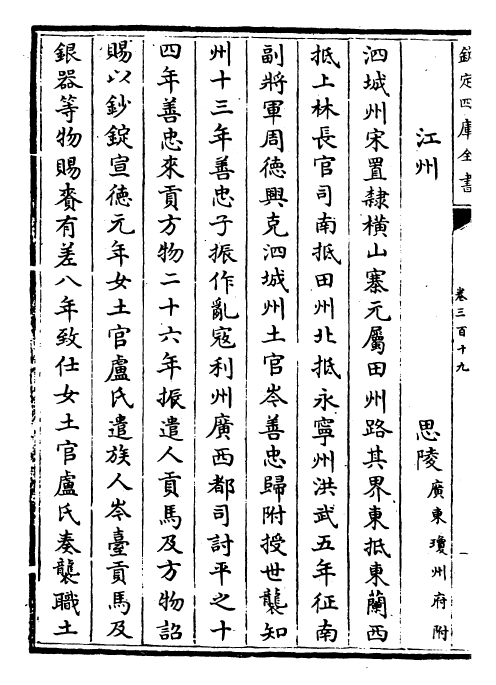 欽定四庫全書
卷三百十九
一
江州
思陵廣東瓊州府附
泗城州宋置隸橫山寨元屬田州路其界東抵東蘭西
抵上林長官司南抵田州北抵永寧州洪武五年征南
副將軍周德興克泗城州土官岑善忠歸附授世襲知
州十三年善忠子振作亂寇利州廣西都司討平之十
四年善忠來貢方物二十六年振遣人貢馬及方物詔
賜以鈔錠宣德元年女土官盧氏遣族人岑臺貢馬及
銀器等物賜賚有差八年致仕女土官盧氏奏襲職土